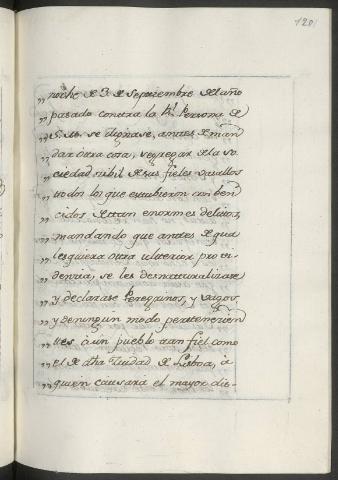 120
„ noche de 3 de Septiembre del año
„ pasado contra la Rl. Persona de
„ S. M. se dignase, antes de man
„ dar otra cosa, segregar de la so
„ ciedad civil de sus fieles vasallos
„ todos los que estubieron conben
„ cidos de tan enormes delitos,
„ mandando que antes de qua
„ lesquiera otra ulterior provi
„ dencia, se les desnaturalizase
„ y declarase Peregrinos, y vagos
„ y de ningun modo pertenecien
„ tes à un pueblo tan fiel como
„ el de dha Ciudad de Lisboa, à
„ quien causará el mayor dis-